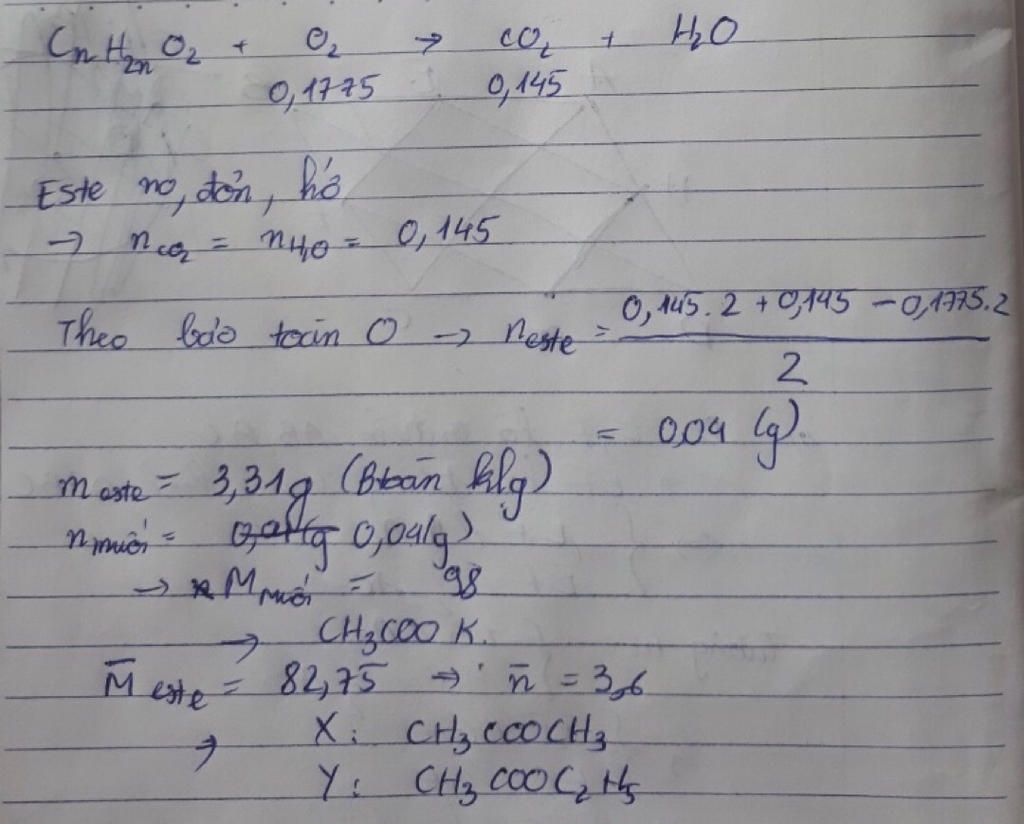 CnH2nO2 + O2 → CO2 + H2O
0,1775 0,145
Este no, đơn, hở
→ nCO2 = nH2O = 0,145
Theo bảo toàn O → neste = 0,145.2 + 0,145 - 0,1775.2
2
= 0,04 (g).
meste = 3,31g (Btoàn klg)
nmuối = 0,04(g)
→ Mmuối = 98
→ CH3COOK.
M̅este = 82,75 → n̅ = 3,6
→ X: CH3COOCH3
Y: CH3COOC2H5